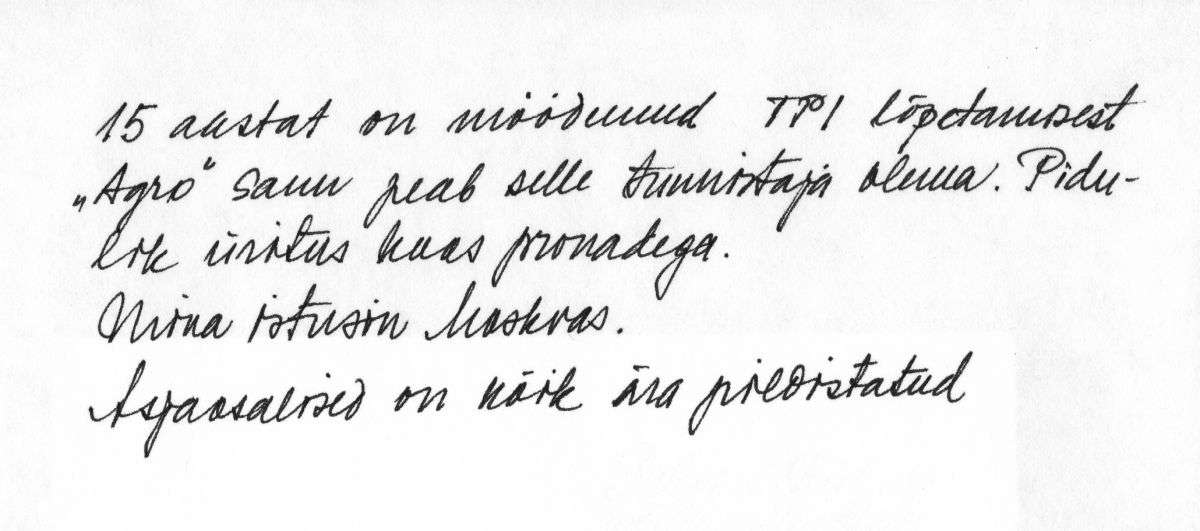 15 aastat on möödunud TPI lõpetamisest
„Agro“ saun peab selle tunnistaja olema. Pidu-
lik üritus koos prouadega.
Mina istusin Moskvas.
Asjaosalised on kõik ära pildistatud